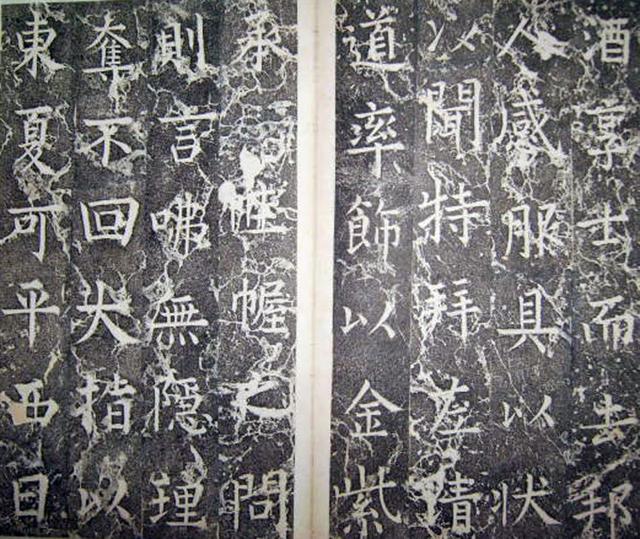 酒享士而去邦
人感服具以状
以聞特拜左清
道率飾以金紫
承帷幄問
則言咈無隱理
奪不回矢指以
東夏可平西日